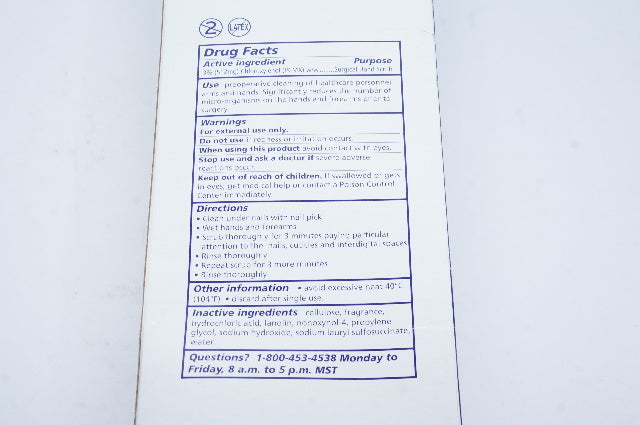 2
LATEX
Drug Facts
Active ingredient Purpose
3% Chloroxylenol (PCMX) w/w.......Surgical Hand Scrub
Use preoperative cleaning of healthcare personnel
arms and hands. Significantly reduces the number of
micro-organisms on the hands and forearms prior to
surgery.
Warnings
For external use only.
Do not use if redness or irritation occurs.
When using this product avoid contact with eyes.
Stop use and ask a doctor if severe adverse
reactions occur.
Keep out of reach of children. If swallowed or gets
in eyes, get medical help or contact a Poison Control
Center immediately.
Directions
• Clean under nails with nail pick
• Wet hands and forearms
• Scrub thoroughly for 3 minutes paying particular
attention to the nails, cuticles and interdigital spaces
• Rinse thoroughly
• Repeat scrub for 3 more minutes
• Rinse thoroughly
Other information • avoid excessive heat 40°C
(104°F) • discard after single use
Inactive ingredients cellulose, fragrance,
hydrochloric acid, lanolin, nonoxynol 4, propylene
glycol, sodium hydroxide, sodium lauryl sulfosuccinate,
water
Questions? 1-800-453-4538 Monday to
Friday, 8 a.m. to 5 p.m. MST